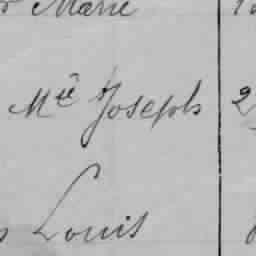 Marie
Mie Joseph 2
Louis